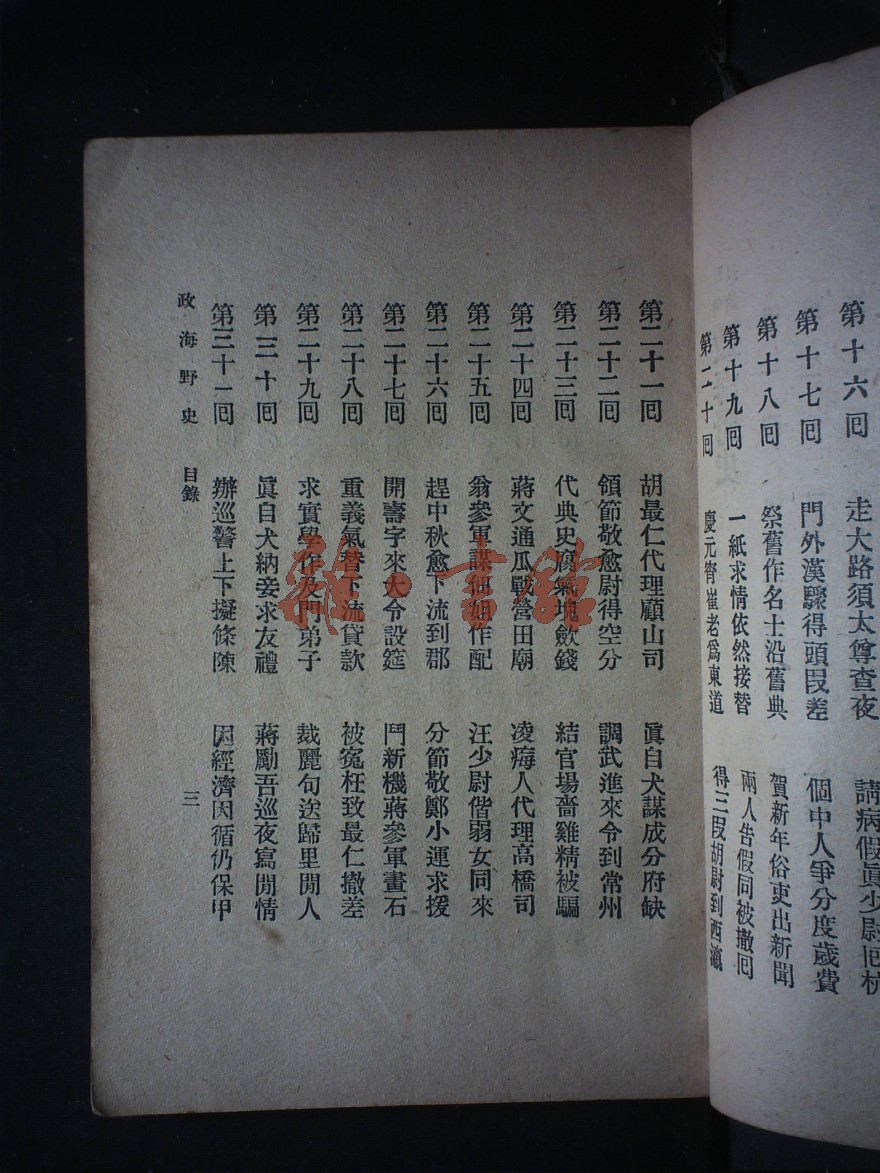 第十六回 走大路須太尊查夜 請病假眞少尉回杭
第十七回 門外漢驟得頭段差 個中人爭分度歲費
第十八回 祭舊作名士沿舊典 賀新年俗吏出新聞
第十九回 一紙求情依然接替 兩人告假同被撤回
第二十回 慶元宵崔老爲東道 得三段胡尉到西瀛
第二十一回 胡最仁代理顧山司 眞自犬謀成分府缺
第二十二回 領節敬愈尉得空分 調武進來令到常州
第二十三回 代典史腐氣塊斂錢 結官場嗇雞精被騙
第二十四回 蔣文通瓜戰營田廟 凌痗人代理高橋司
第二十五回 翁參軍謀 作配 汪少尉偕弱女同來
第二十六回 趕中秋愈下流到郡 分節敬鄭小運求援
第二十七回 開壽字來大令設筵 鬥新機蔣參軍畫石
第二十八回 重義氣替下流貸款 被冤枉致最仁撤差
第二十九回 求實學作及門弟子 裁麗句送歸里閒人
第三十回 眞自犬納妾求友禮 蔣勵吾巡夜寫閒情
第三十一回 辦巡警上下擬條陳 因經濟因循仍保甲
政海野史 目錄 三